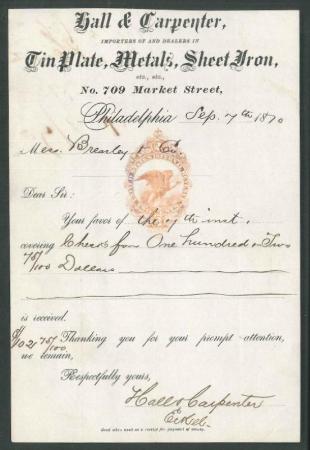 Hall & Carpenter,
IMPORTERS OF AND DEALERS IN
Tin Plate, Metals, Sheet Iron,
etc., etc.,
No. 709 Market Street,
Philadelphia Sep. 7th 1870
Mess. Brearley & Co.
Dear Sir:
Your favor of the 7th inst,
covering Check for One hundred & Two
75/100 Dollars
is received.
$102 75/100 Thanking you for your prompt attention,
we remain,
Respectfully yours,
Hall & Carpenter
Good when used as a receipt for payment of money.